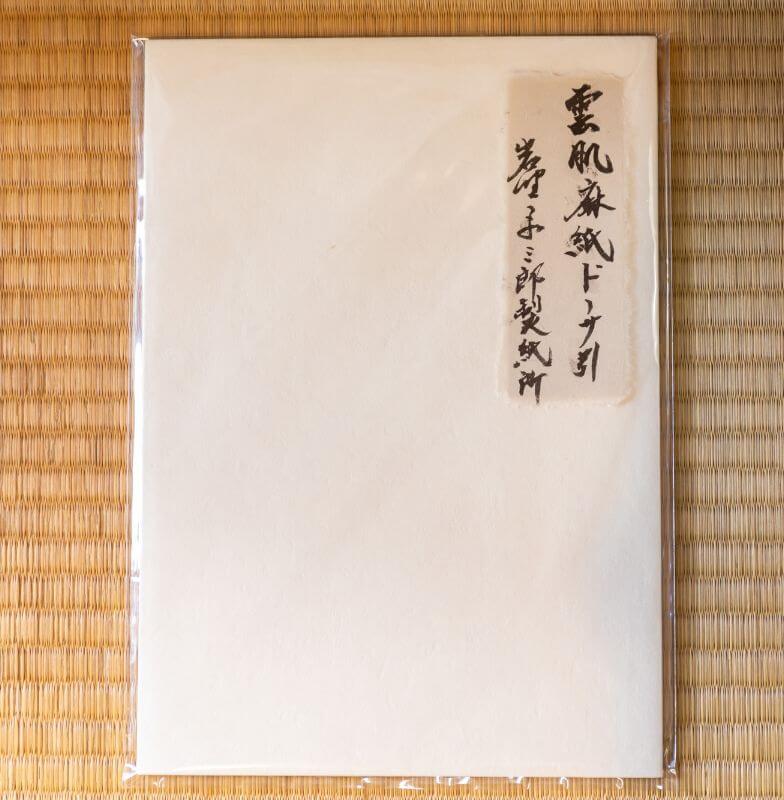 雲肌麻紙ドーサ引
岩野平三郎製紙所